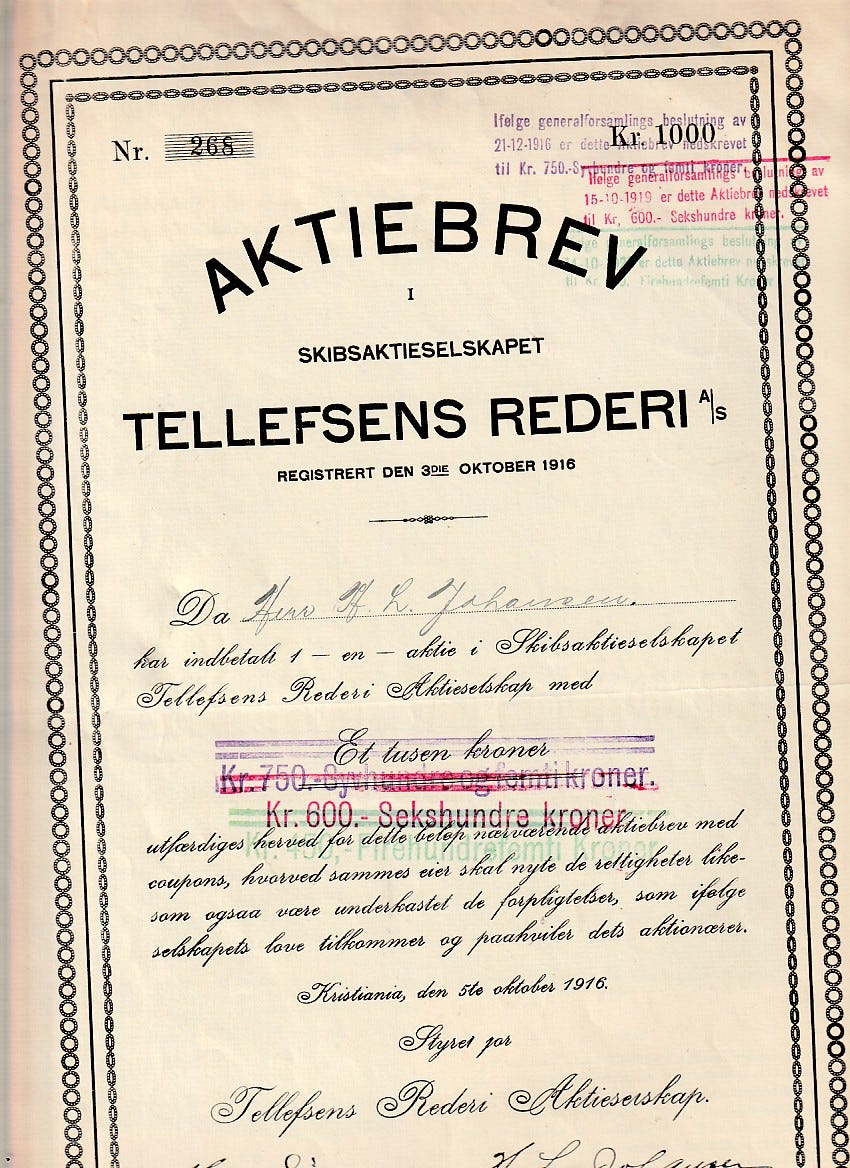 Nr. 268
Kr. 1000
Ifølge generalforsamlings beslutning av
21-12-1916 er dette Aktiebrev nedskrevet
til Kr. 750.-Syvhundre og femti kroner.
Ifølge generalforsamlings beslutning av
15-10-1919 er dette Aktiebrev nedskrevet
til Kr, 600.- Sekshundre kroner.
generalforsamlings beslutning
er dette Aktiebrev
til Kr. Firehundrefemti Kroner
AKTIEBREV
I
SKIBSAKTIESELSKAPET
TELLEFSENS REDERI A/S
REGISTRERT DEN 3DIE OKTOBER 1916
Da Herr H. L. Johansen.
har indbetalt 1 – en – aktie i Skibsaktieselskapet
Tellefsens Rederi Aktieselskap med
Et tusen kroner
Kr. 750.-Syvhundre og femti kroner.
Kr. 600.- Sekshundre kroner.
utfærdiges herved for dette beløp nærværende aktiebrev med
Kr. 450,- Firehundrefemti Kroner
coupons, hvorved sammes eier skal nyte de rettigheter like-
som ogsaa være underkastet de forpligtelser, som ifølge
selskapets love tilkommer og paahviler dets aktionærer.
Kristiania, den 5te oktober 1916.
Styret for
Tellefsens Rederi Aktieselskap.
H. L. Johansen